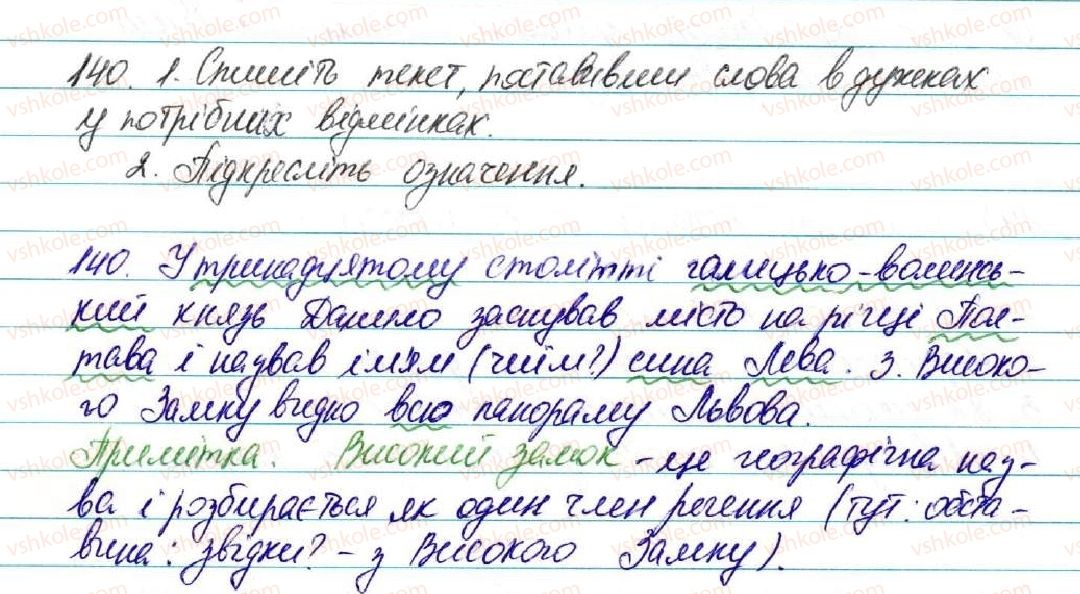 140. 1. Спишіть текст, поставивши слова в дужках
у потрібних відмінках.
2. Підкресліть означення.
140. У тринадцятому столітті галицько-волинсь-
кий князь Данило заснував місто на річці Пол-
тава і назвав ім'ям (чиїм?) сина Лева. З Високо-
го Замку видно всю панораму Львова.
Примітка. Високий замок - це географічна наз-
ва і розбирається як один член речення (тут: обста-
вина: звідки? - з Високого Замку).